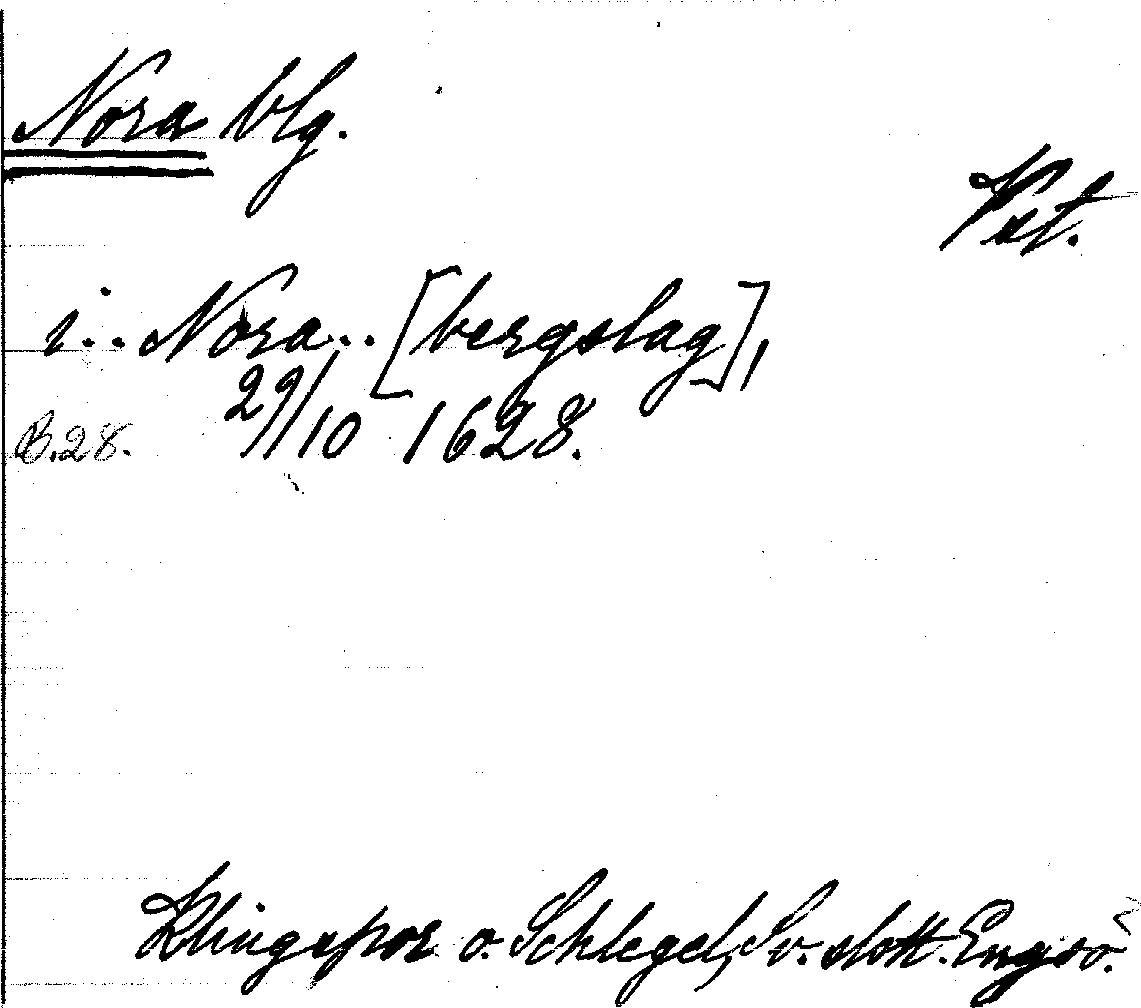 Nora blg.
Vst.
i.. Nora.. [bergslag],
B.28. 29/10 1628.
Klingspor o. Schlegel, Sv. slott. Engsö.